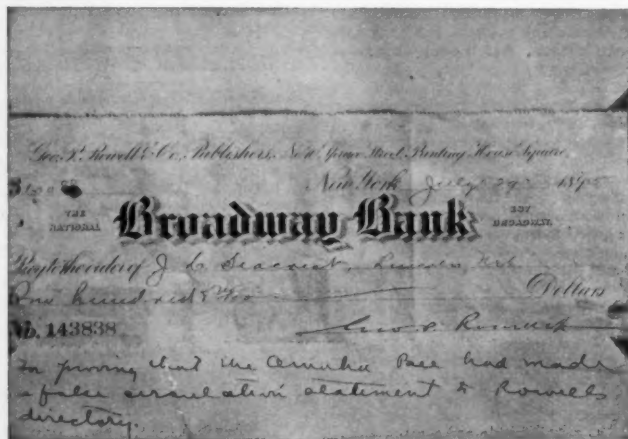 Geo. P. Rowell & Co., Publishers, No. 10 Spruce Street, Printing House Square,
$100 00
New York July 29 189
THE NATIONAL Broadway Bank 237 BROADWAY.
Pay to the order of J C Seacrest, Lincoln, Neb
One hundred & no/100 Dollars
No. 143838
Geo. P. Rowell
In proving that the Omaha Bee had made
a false circulation statement to Rowells
directory.